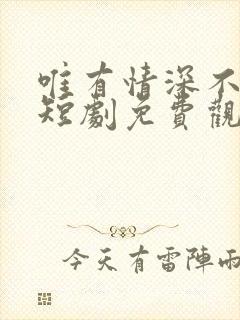 唯有情深不
短劇免費觀
今天有雷陣雨